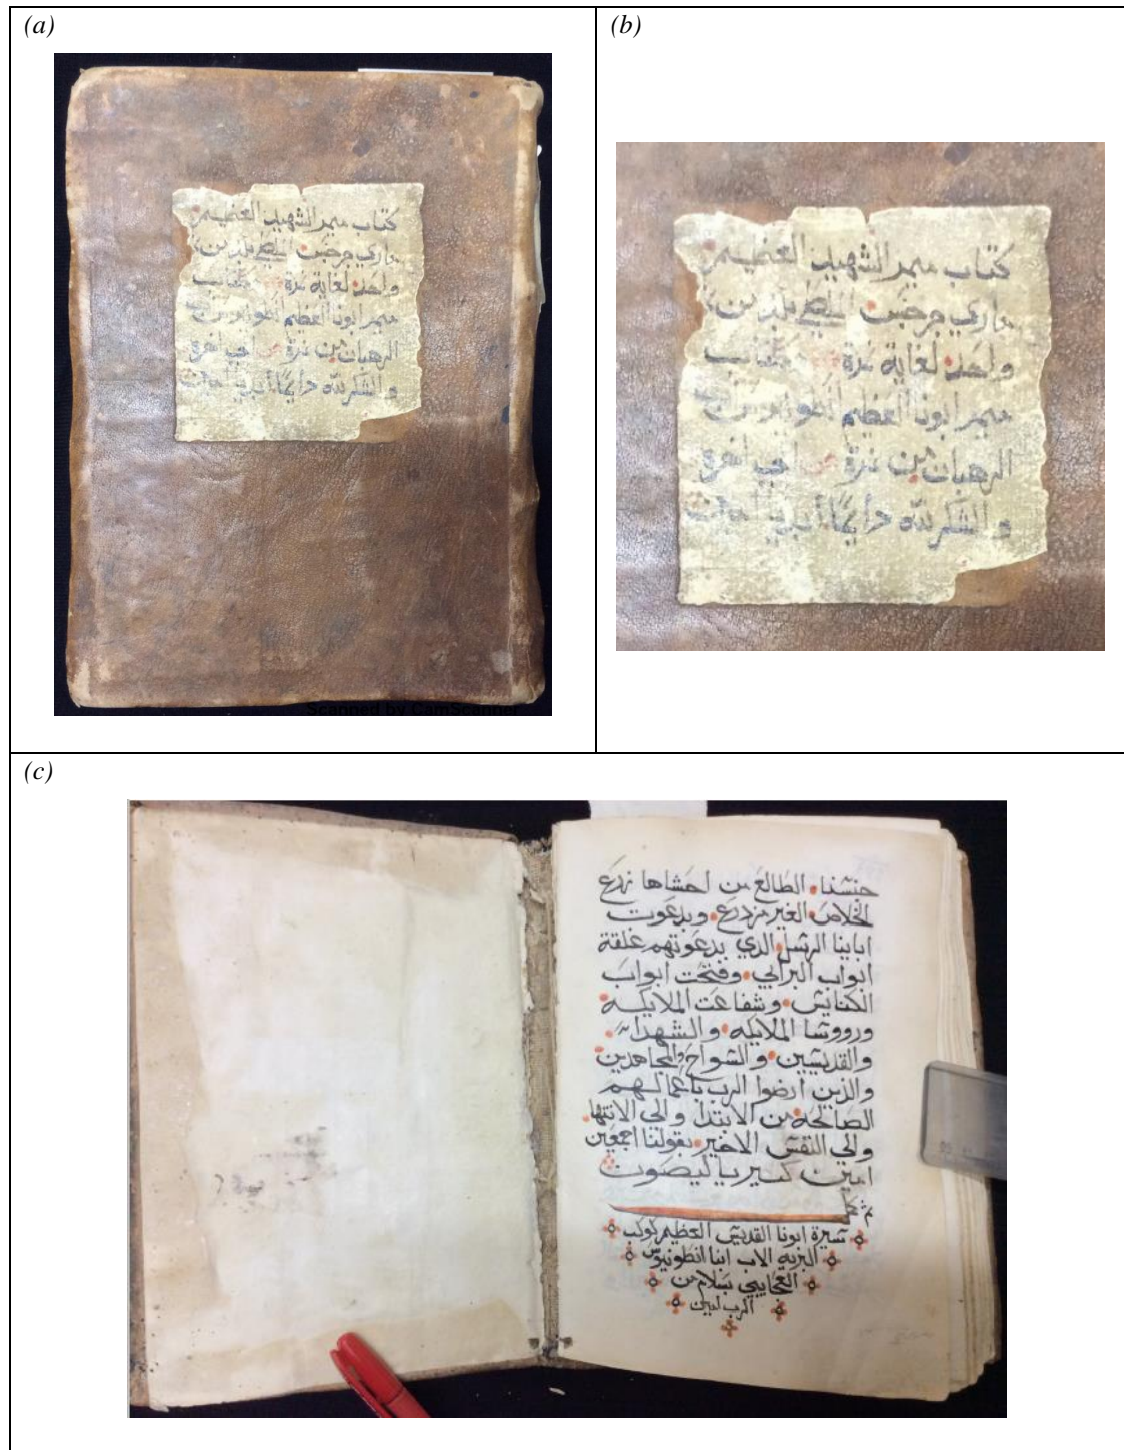 (a)
كتاب ميمر الشهيد العظيم
ماري جرجس
واحد لغاية نمرة
ميمر ابونا العظيم
الرهبان من نمرة الي اخره
والشكر لله دايمًا أبديا
Scanned by CamScanner
(b)
كتاب ميمر الشهيد العظيم
ماري جرجس
واحد لغاية نمرة
ميمر ابونا العظيم
الرهبان من نمرة الي اخره
والشكر لله دايمًا أبديا
(c)
جنسنا الطالع من احشاها زرع
الخلاص الغير مزدرع وبدعوت
ابابينا الرسل الدي بدعوتهم غلقة
ابواب البرابي وفتحت ابواب
الكنايس وشفاعت الملايكه
ورووسا الملايكه والشهدا
والقديسين والسواح والمجاهدين
والذين ارضوا الرب باعمالهم
الصالحه من الابتدا والى الانتها
والي النفس الاخير بقولنا اجمعين
امين كيرياليصون
سيرة ابونا القديس العظيم كوكب
البريه الاب انبا انطونيوس
العجايبي بسلام من
الرب امين